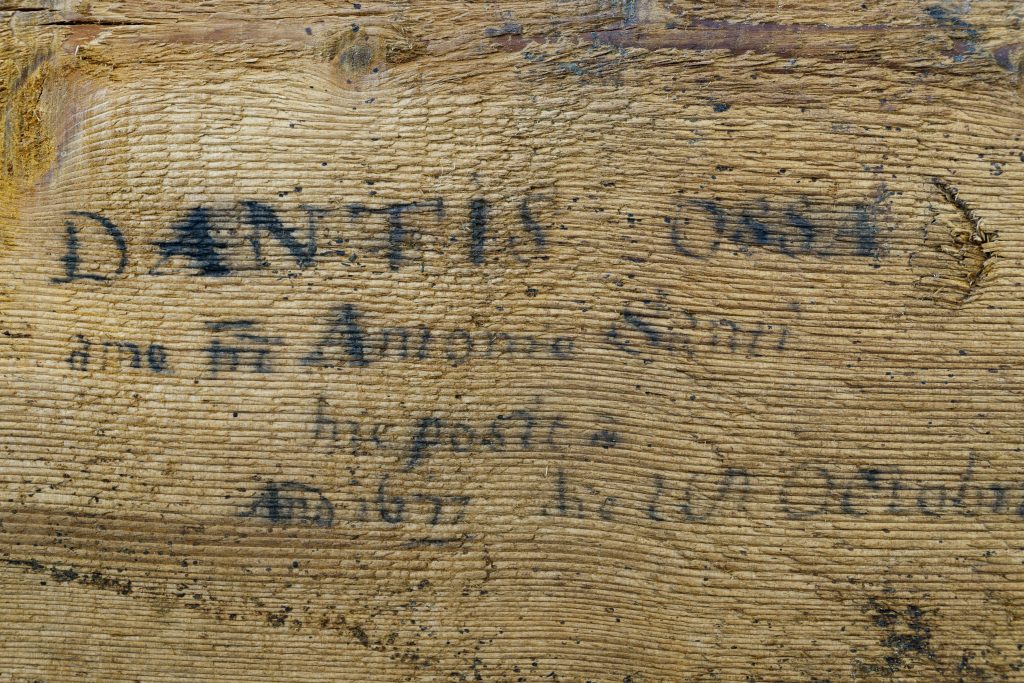 DANTIS OSSA
a me Fre Antonio Santi
hic posita
Ano 1677 die 18 Octobris